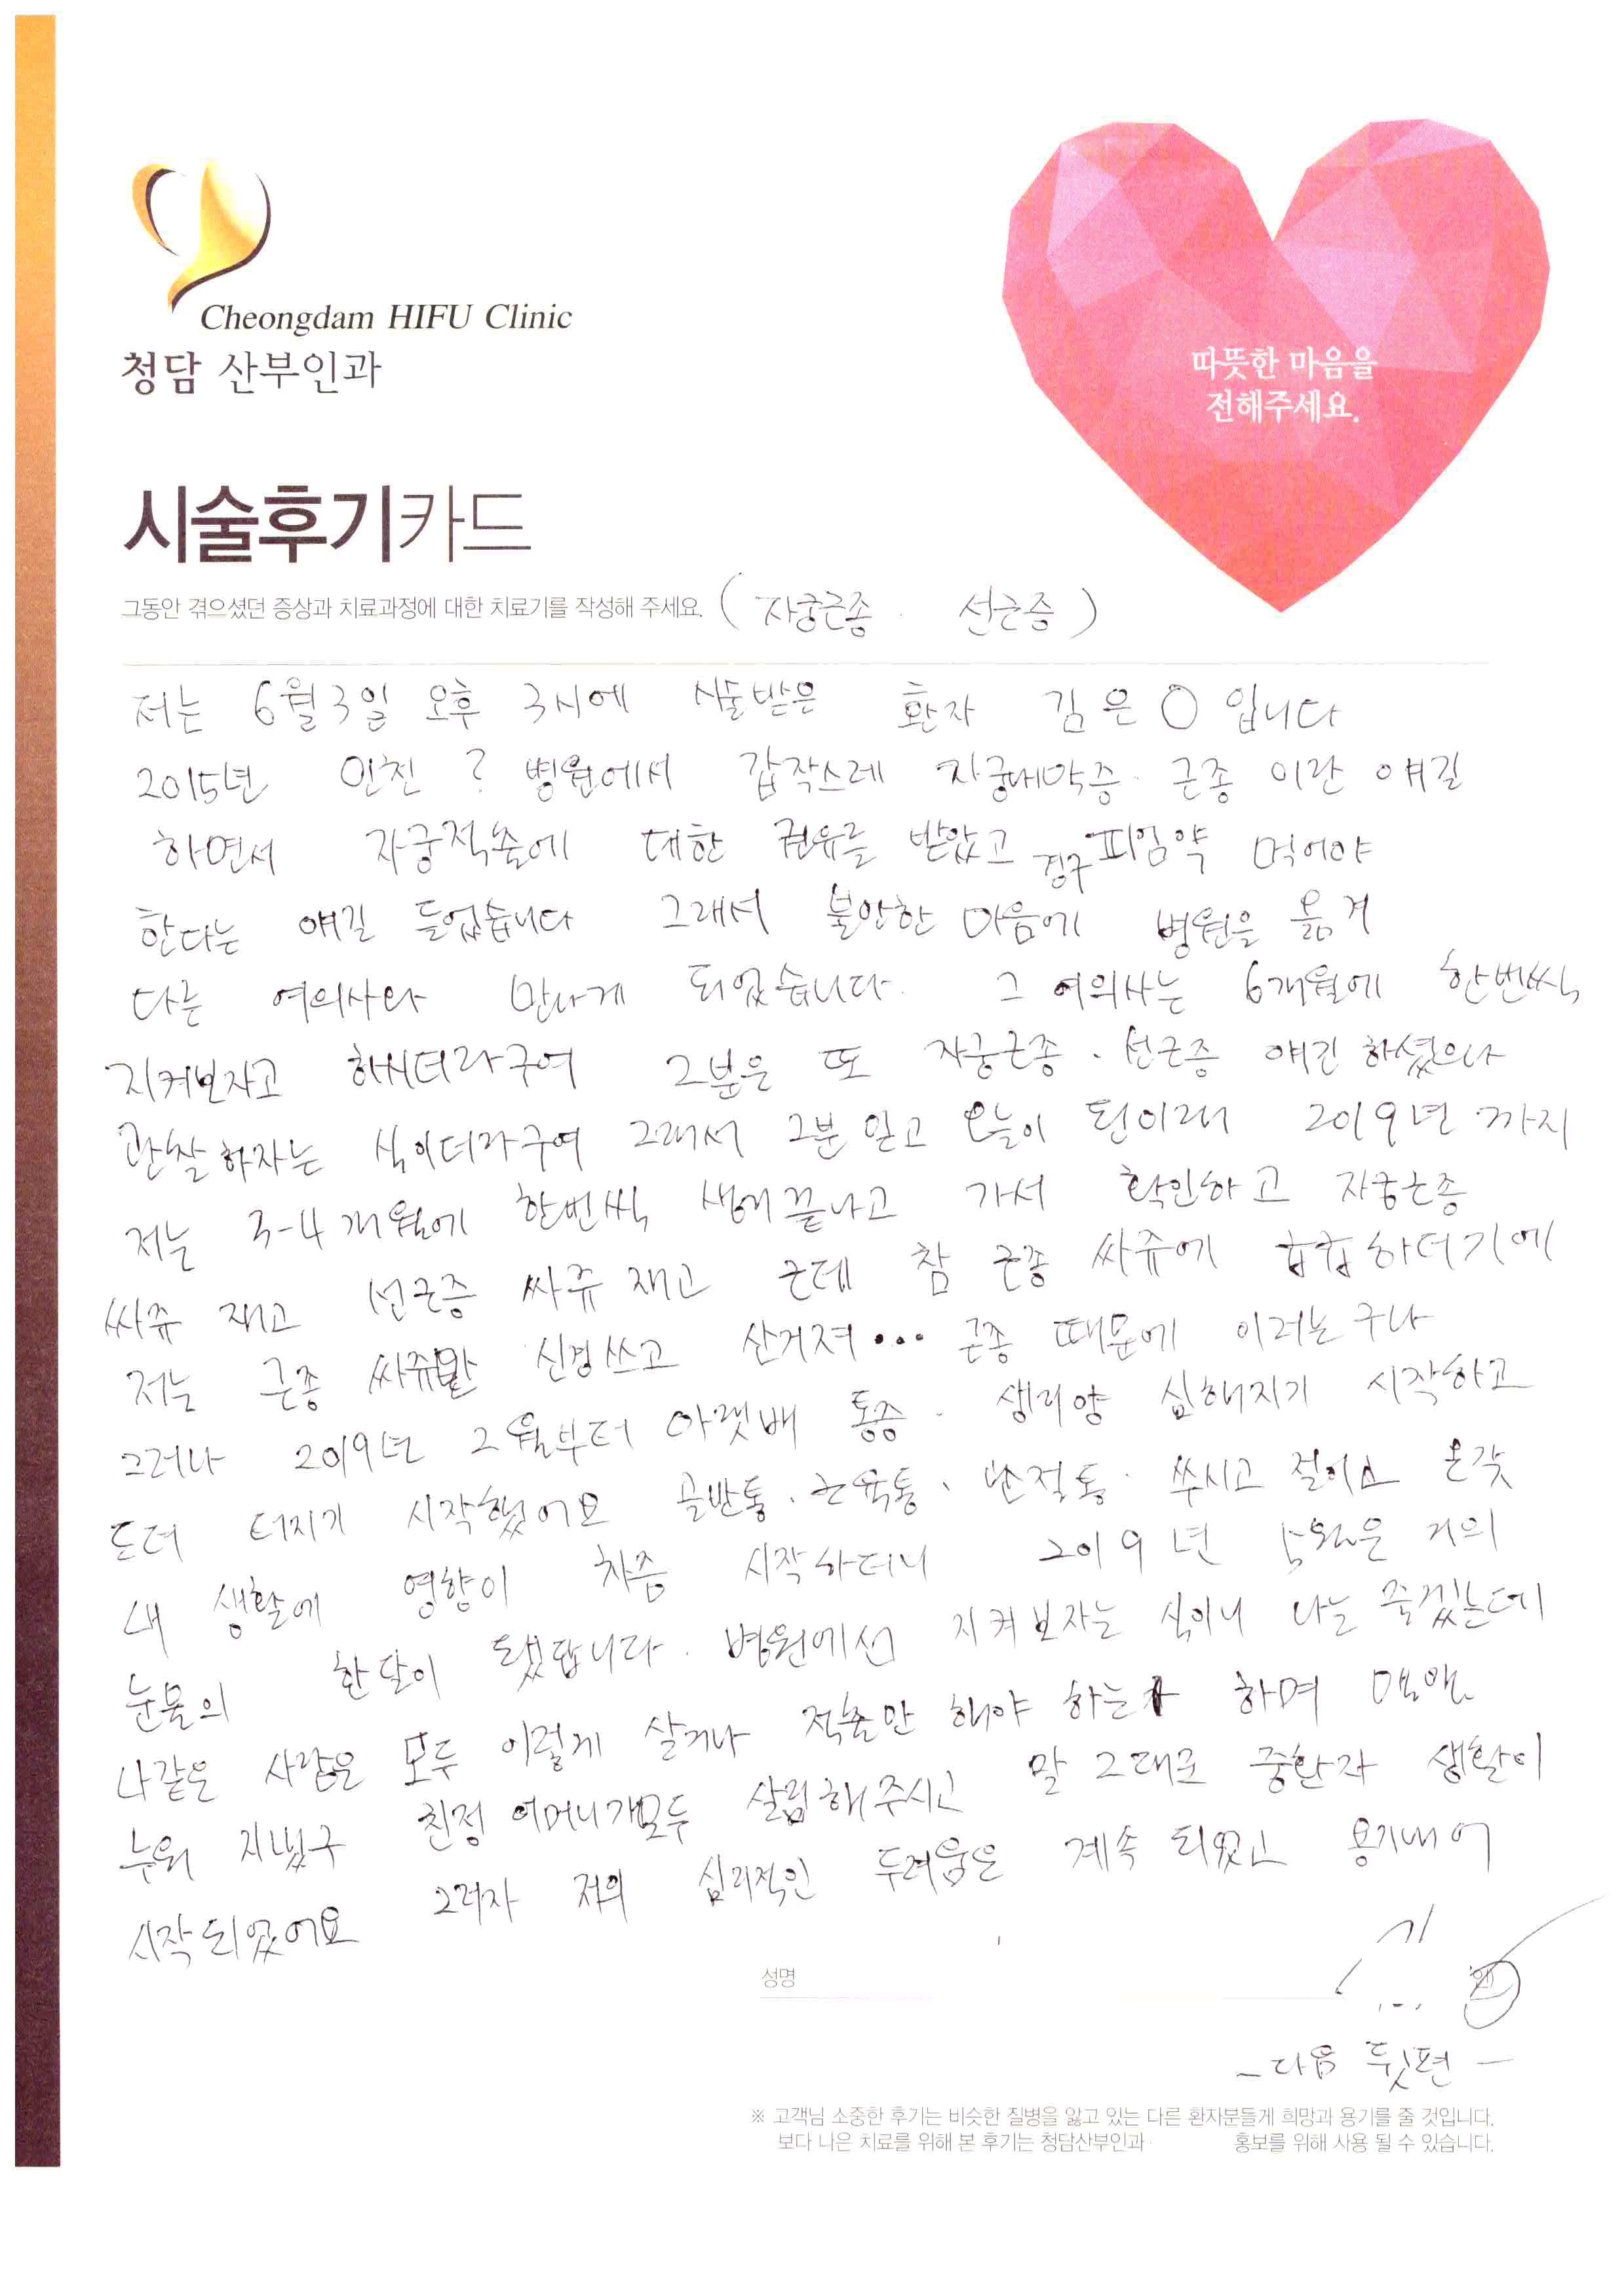 Cheongdam HIFU Clinic
청담 산부인과
따뜻한 마음을
전해주세요.
시술후기카드
그동안 겪으셨던 증상과 치료과정에 대한 치료기를 작성해 주세요. ( 자궁근종 . 선근증 )
저는 6월 3일 오후 3시에 시술받은 환자 김은○입니다
2015년 인천 ? 병원에서 갑작스레 자궁내막증. 근종 이란 얘길
하면서 자궁적출에 대한 권유를 받았고 경구 피임약 먹어야
한다는 얘길 들었습니다 그래서 불안한 마음에 병원을 옮겨
다른 여의사와 만나게 되었습니다. 그 여의사는 6개월에 한번씩
지켜보자고 하시더라구여 그분은 또 자궁근종 . 선근증 얘긴 하셨으나
관찰하자는 식이더라구여 그래서 그분 믿고 오늘이 된이래 2019년 까지
저는 3-4개월에 한번씩 생리끝나고 가서 확인하고 자궁근종
싸쥬 재고 선근증 싸쥬 재고 근데 참 근종 싸쥬에 하더기에
저는 근종 싸쥬만 신경쓰고 산거져... 근종 때문에 이러는구나
그러나 2019년 2월부터 아랫배 통증 . 생리양 심해지기 시작하고
드뎌 터지기 시작했어요 골반통 . 근육통 . 쑤시고 온갖
내 생활에 영향이 차츰 시작하더니 2019년 5월은 거의
눈물의 한달이 됐답니다. 병원에선 지켜보자는 식이니 나는 죽겠는데
나같은 사람은 모두 이렇게 살거나 적출만 해야 하는가 하며
누워 지냈구 친정 어머니가모두 살림해주시고 말 그대로 중환자 생활이
시작되었어요 그러자 저의 심리적인 두려움은 계속 되었고 용기내어
성명
인
- 다음 뒷편 -
※ 고객님 소중한 후기는 비슷한 질병을 앓고 있는 다른 환자분들게 희망과 용기를 줄 것입니다.
보다 나은 치료를 위해 본 후기는 청담산부인과 홍보를 위해 사용 될 수 있습니다.